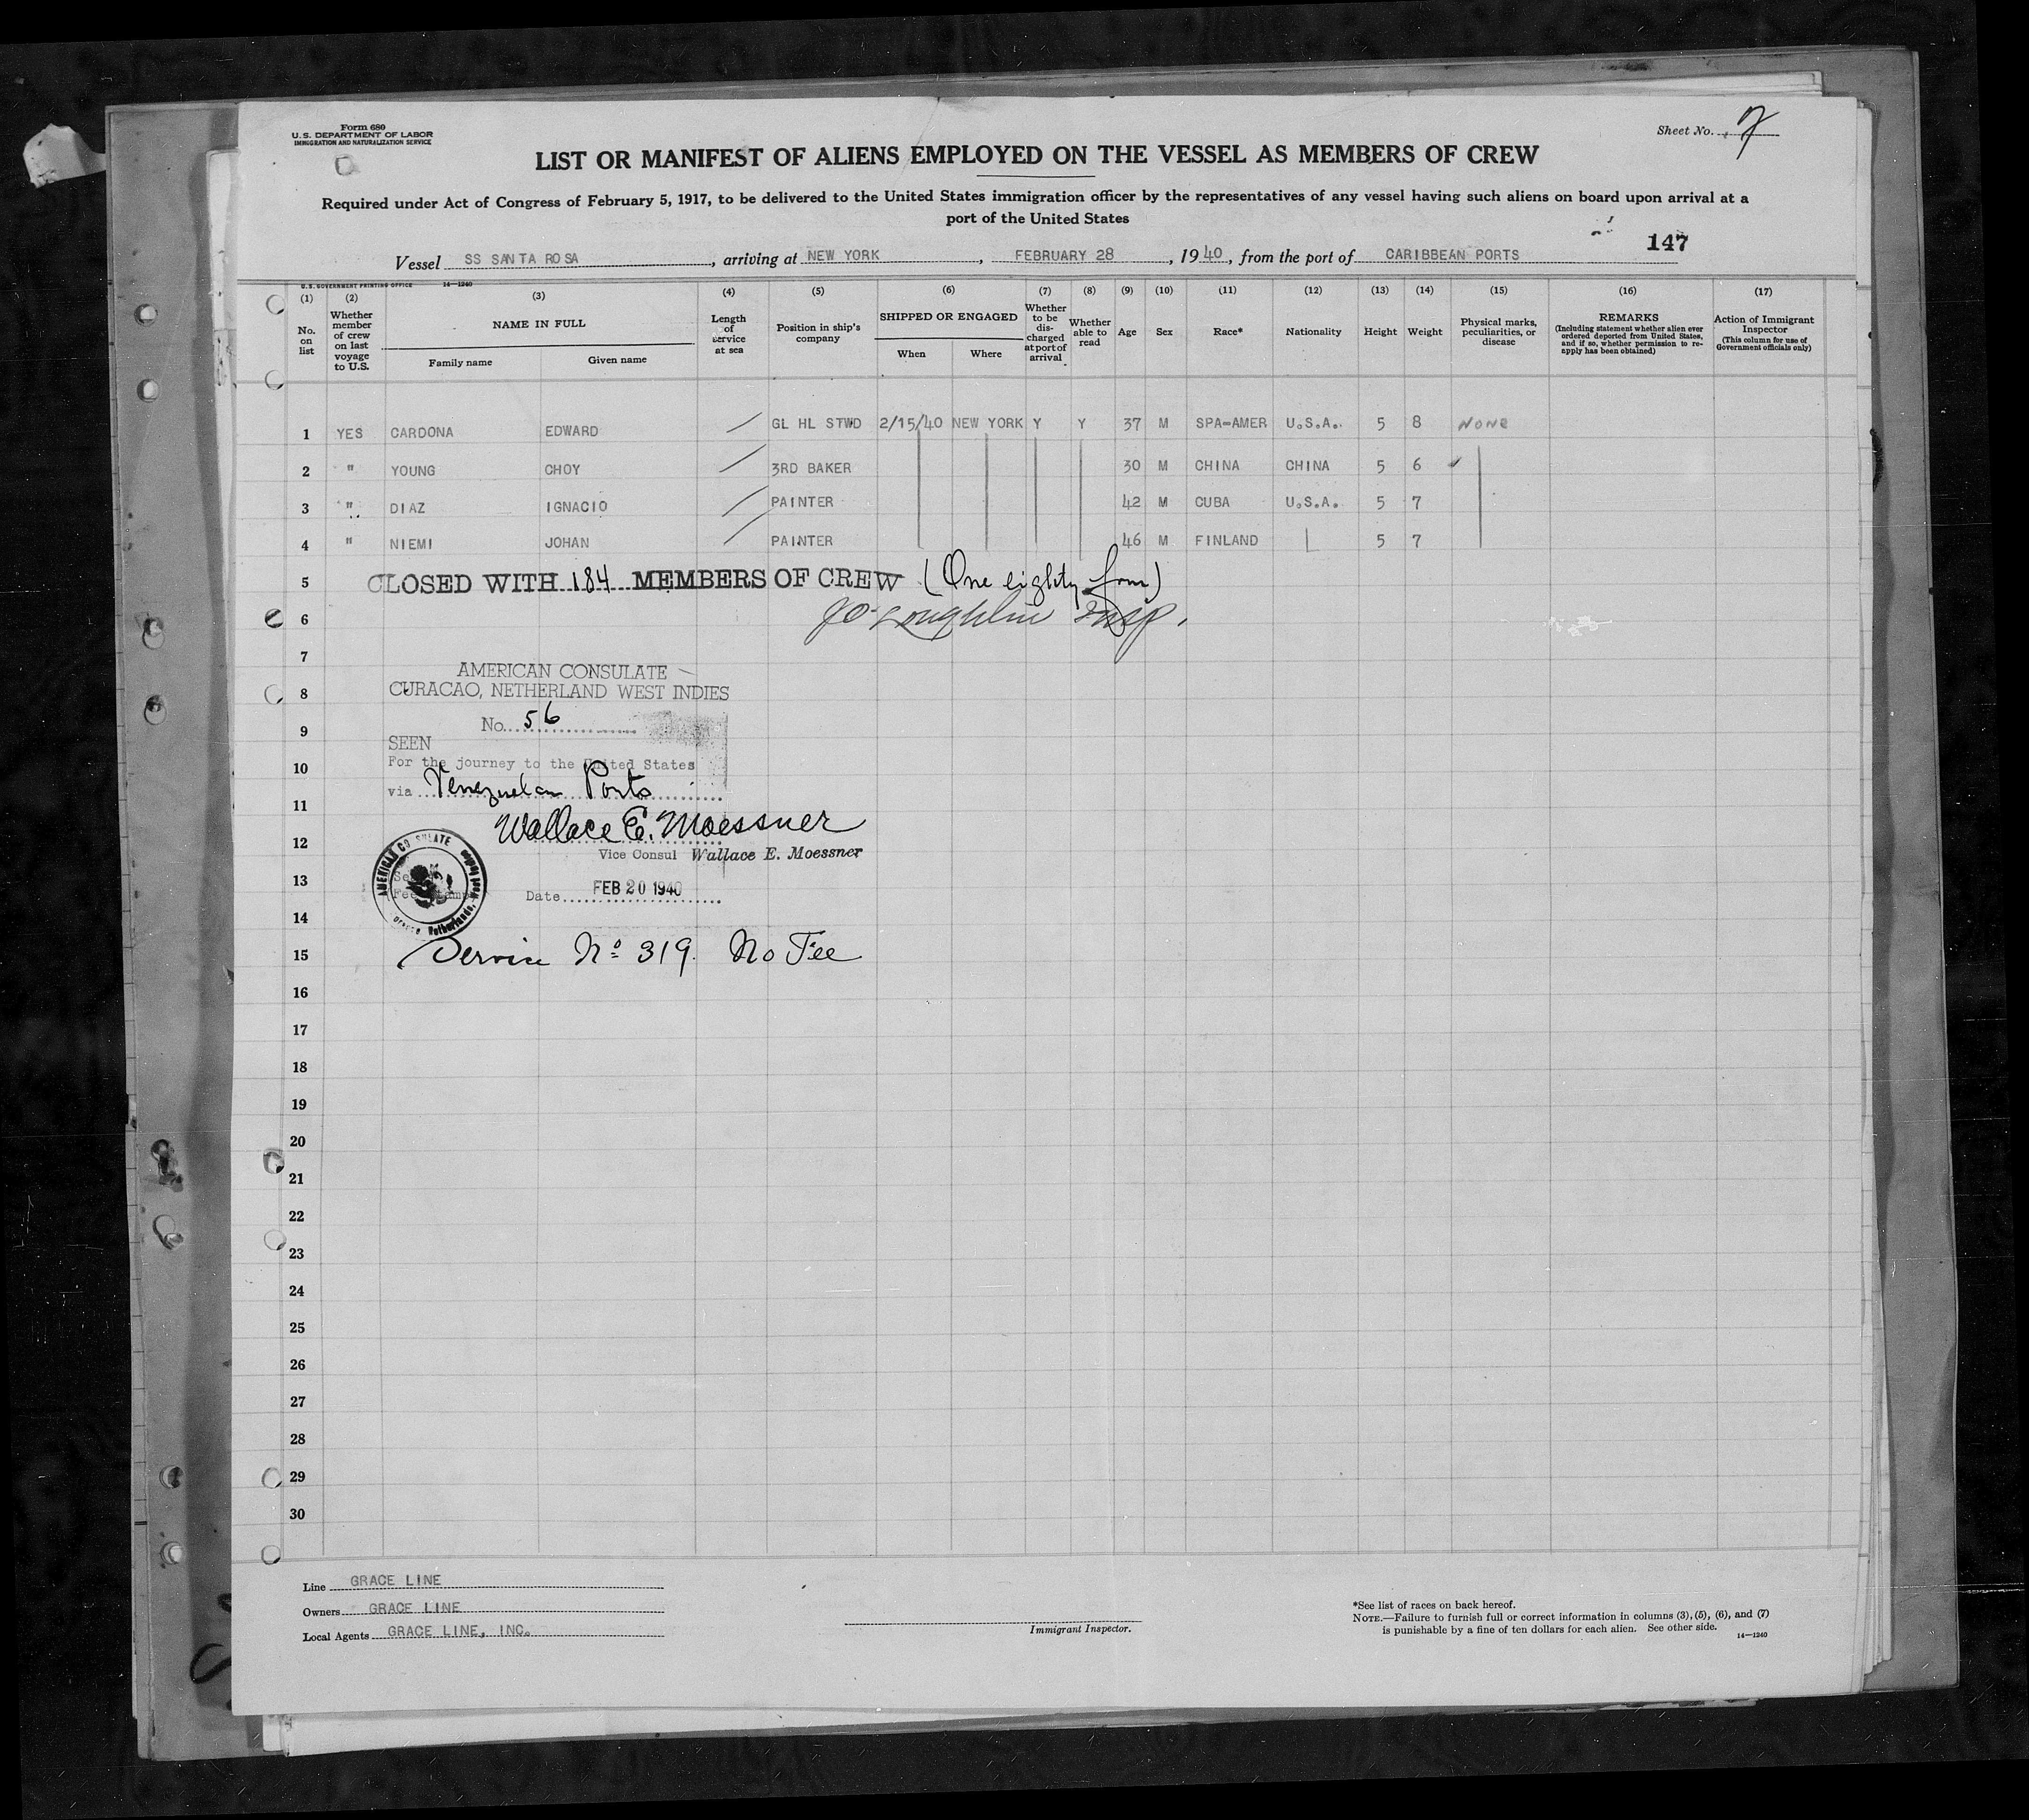 Form 680
U.S. DEPARTMENT OF LABOR
IMMIGRATION AND NATURALIZATION SERVICE
Sheet No. 7
LIST OR MANIFEST OF ALIENS EMPLOYED ON THE VESSEL AS MEMBERS OF CREW
Required under Act of Congress of February 5, 1917, to be delivered to the United States immigration officer by the representatives of any vessel having such aliens on board upon arrival at a
port of the United States
147
Vessel SS SANTA ROSA, arriving at NEW YORK, FEBRUARY 28, 1940, from the port of CARIBBEAN PORTS
U.S. GOVERNMENT PRINTING OFFICE 14—1240
(1) (2) (3) (4) (5) (6) (7) (8) (9) (10) (11) (12) (13) (14) (15) (16) (17)
No. on list
Whether member of crew on last voyage to U.S.
NAME IN FULL
Family name Given name
Length of service at sea
Position in ship's company
SHIPPED OR ENGAGED
When Where
Whether to be discharged at port of arrival
Whether able to read
Age
Sex
Race*
Nationality
Height
Weight
Physical marks, peculiarities, or disease
REMARKS
(Including statement whether alien ever ordered deported from United States, and if so, whether permission to re-apply has been obtained)
Action of Immigrant Inspector
(This column for use of Government officials only)
1 YES CARDONA EDWARD GL HL STWD 2/15/40 NEW YORK Y Y 37 M SPA-AMER U.S.A. 5 8 NONE
2 " YOUNG CHOY 3RD BAKER 30 M CHINA CHINA 5 6
3 " DIAZ IGNACIO PAINTER 42 M CUBA U.S.A. 5 7
4 " NIEMI JOHAN PAINTER 46 M FINLAND 5 7
5 CLOSED WITH 184 MEMBERS OF CREW (One eighty four)
6 JO'Loughlin Insp.
7
AMERICAN CONSULATE
8 CURACAO, NETHERLAND WEST INDIES
9 No. 56
SEEN
10 For the journey to the United States
via Venezuelan Ports
11
Wallace E. Moessner
12
Vice Consul Wallace E. Moessner
AMERICAN CONSULATE
13
Date FEB 20 1940
14
15 Service No 319. No Fee
16
17
18
19
20
21
22
23
24
25
26
27
28
29
30
Line GRACE LINE
Owners GRACE LINE
Local Agents GRACE LINE, INC.
Immigrant Inspector.
*See list of races on back hereof.
NOTE.—Failure to furnish full or correct information in columns (3), (5), (6), and (7)
is punishable by a fine of ten dollars for each alien. See other side.
14—1240